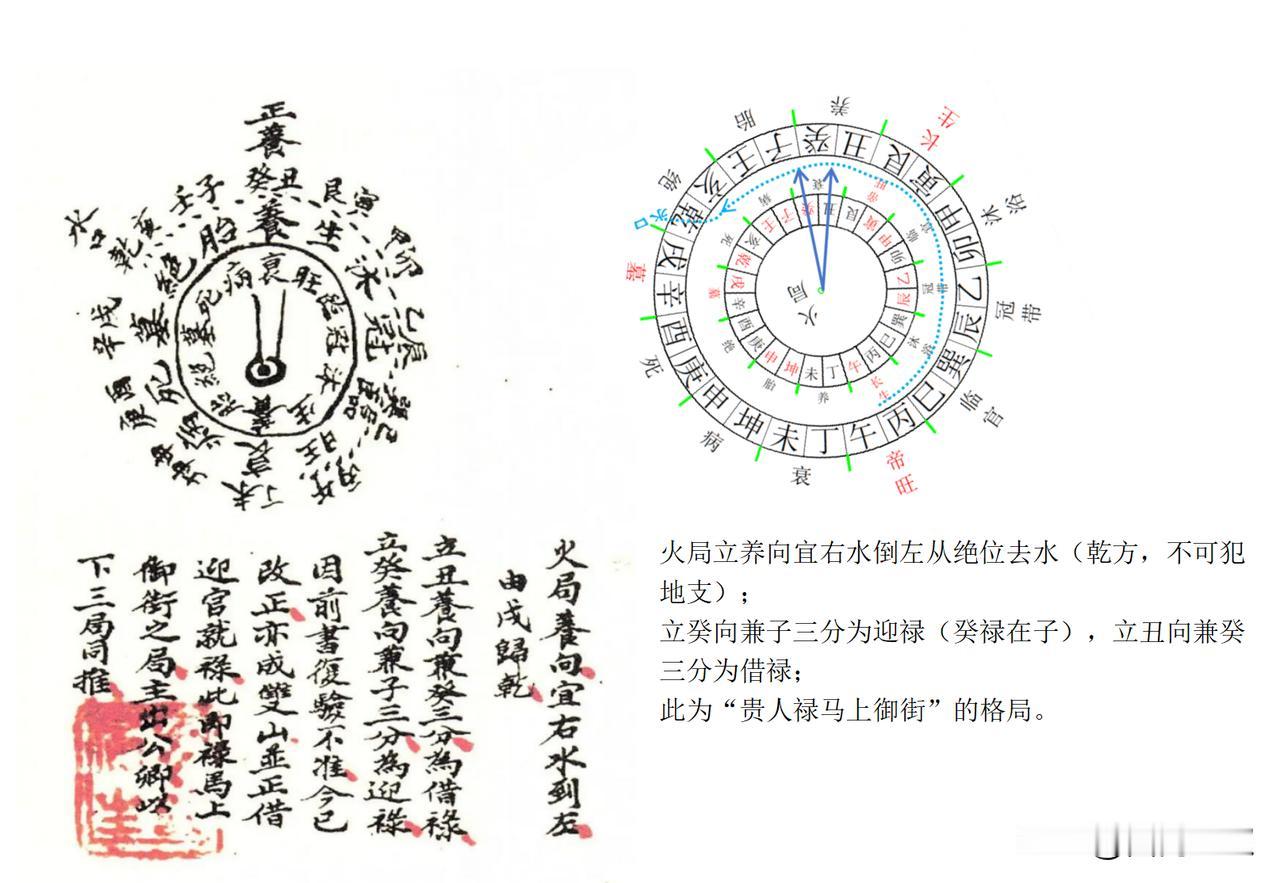 正養
癸丑
艮寅
壬子
乾亥
水口
養
生
胎
沐
絕
冠
墓
死
辛戌
乙辰
衰
病
衰
旺
臨
冠
沐
生
養
胎
絕
墓
死
火局養向宜右水到左
由戌歸乾
立丑養向兼癸三分為借祿
立癸養向兼子三分為迎祿
因前書復驗不准今已
改正亦成雙山並正借
迎官就祿此即祿馬上
御街之局主出公卿以
下三局同推
养
长生
沐浴
冠带
临官
帝旺
衰
病
死
墓
绝
胎
癸
丑
艮
寅
甲
卯
乙
辰
巽
巳
丙
午
丁
未
坤
申
庚
酉
辛
戌
乾
亥
壬
子
水口
衰
帝旺
临官
冠带
沐浴
长生
养
胎
绝
墓
死
病
癸
丑
艮
寅
甲
卯
乙
辰
巽
巳
丙
午
丁
未
坤
申
庚
酉
辛
戌
乾
亥
壬
子
火局
火局立养向宜右水倒左从绝位去水（乾方，不可犯
地支）；
立癸向兼子三分为迎禄（癸禄在子），立丑向兼癸
三分为借禄；
此为“贵人禄马上御街”的格局。